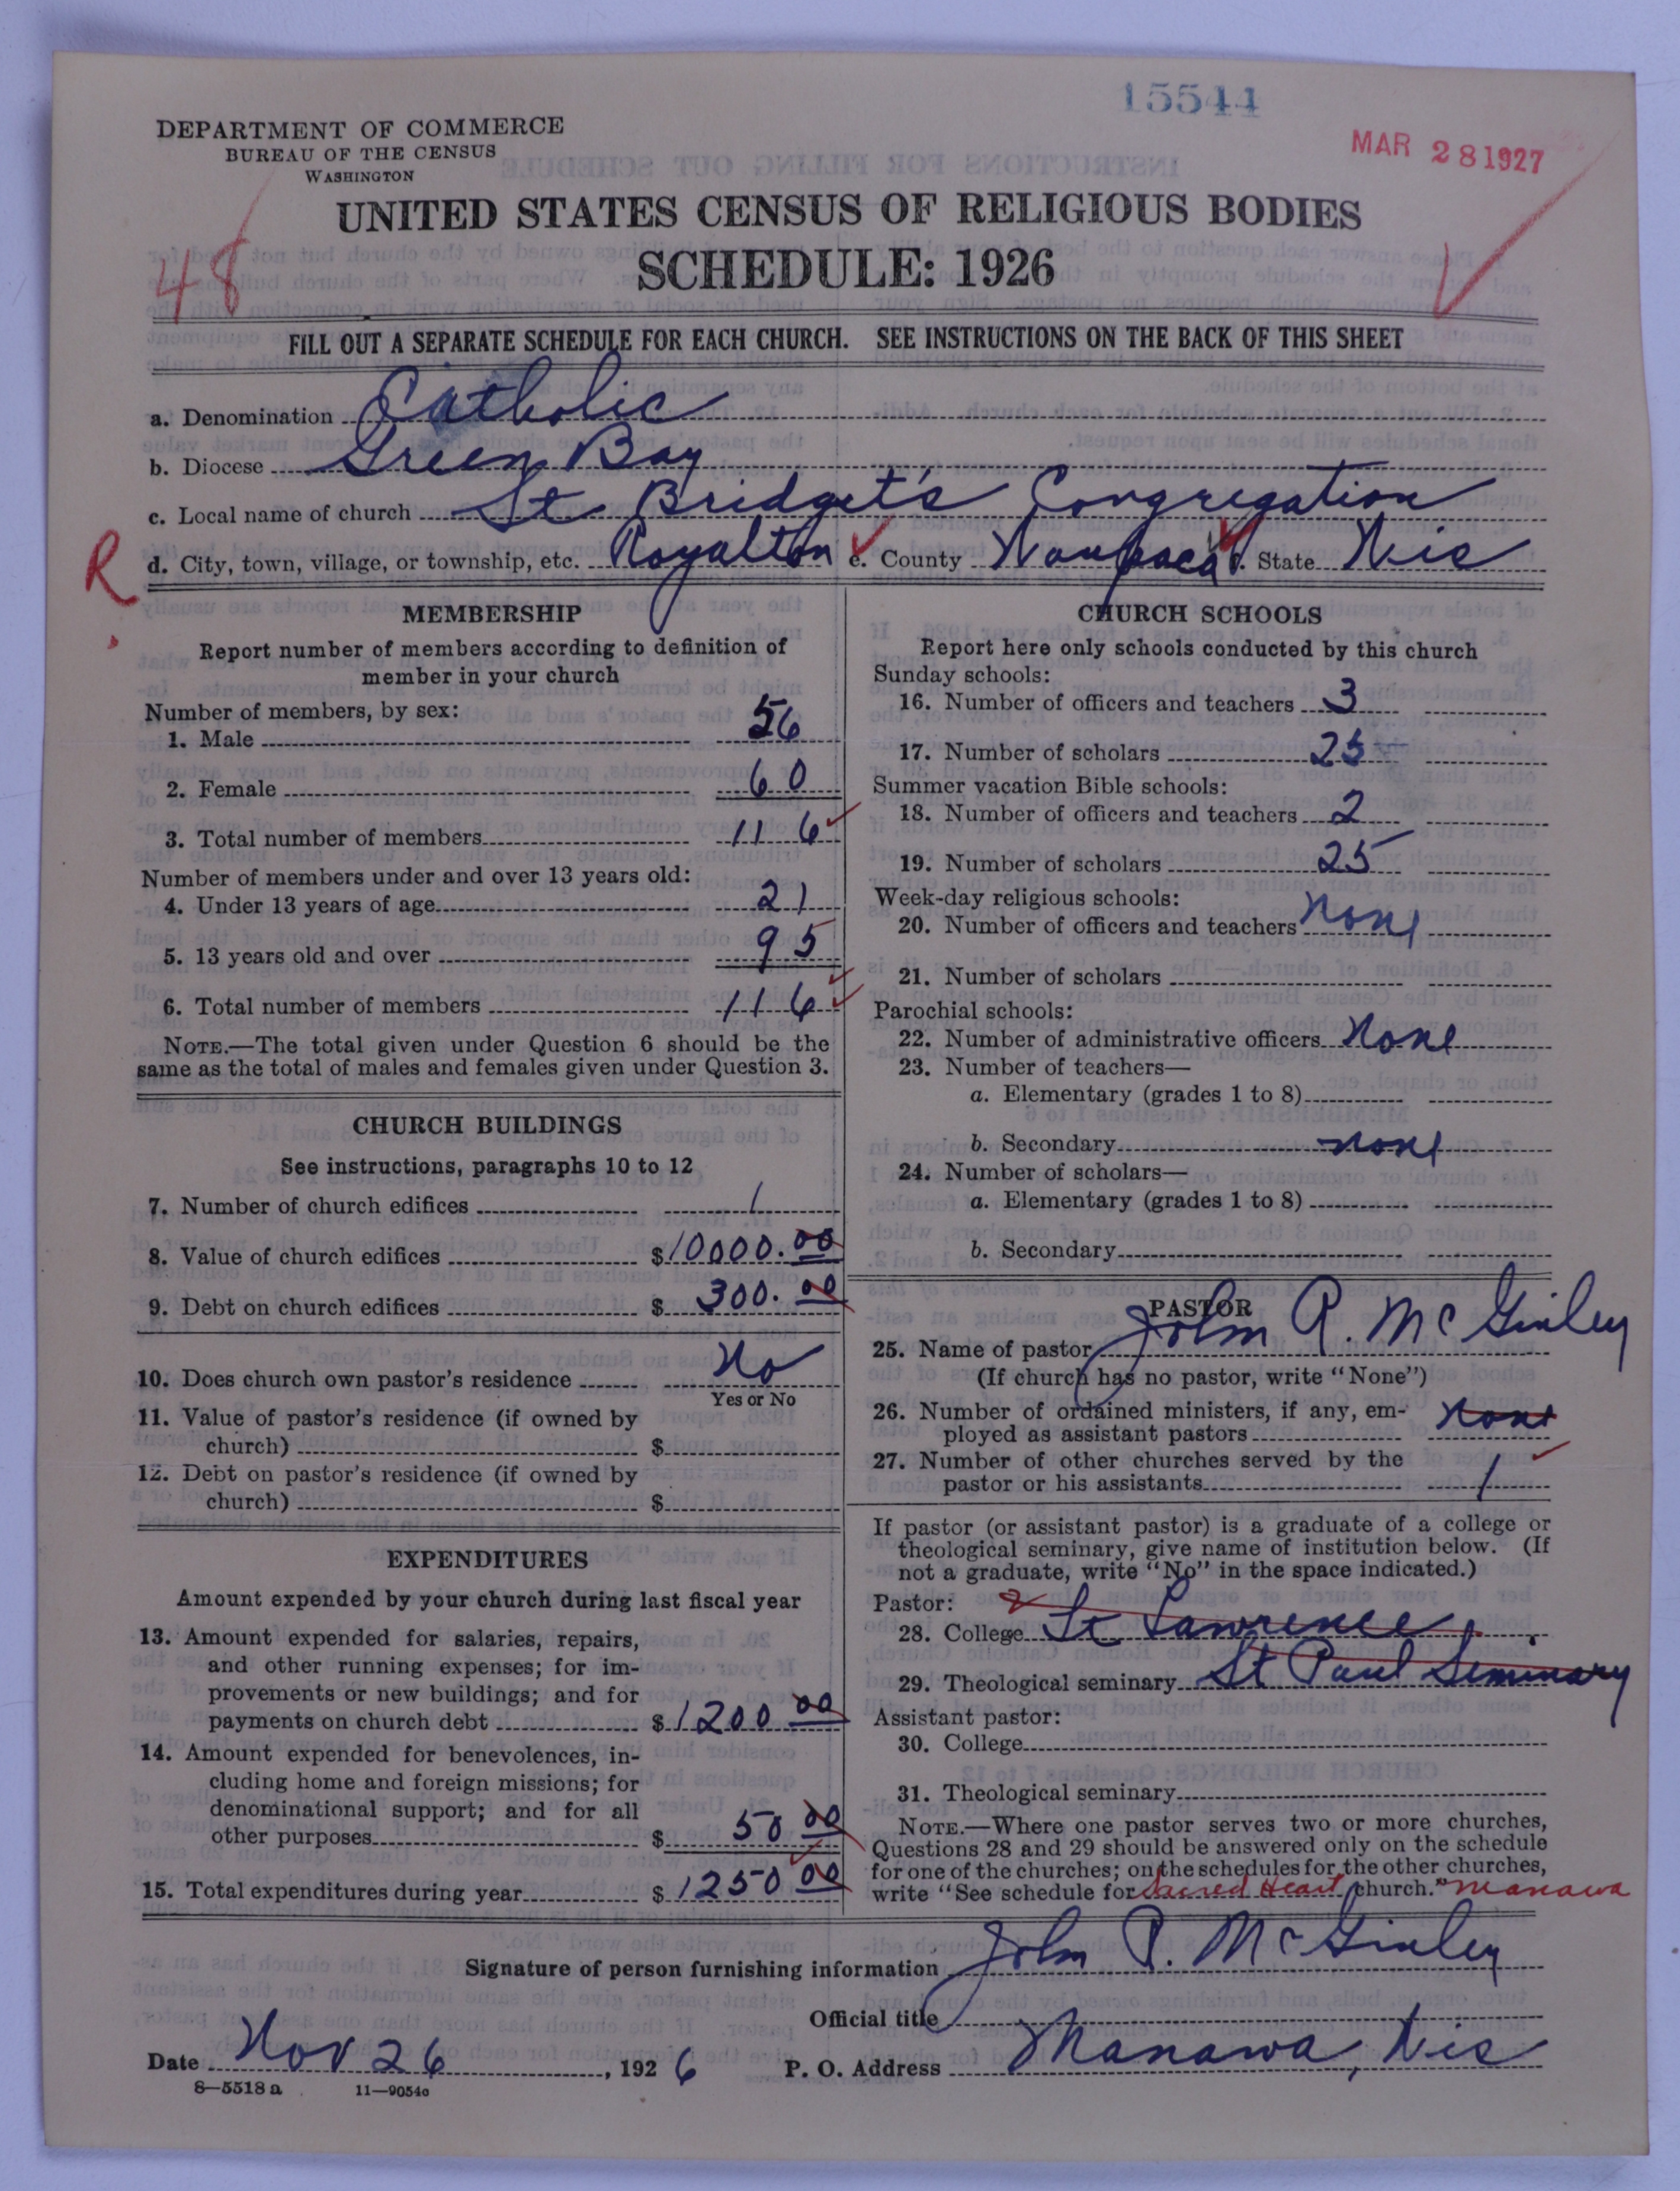 15544
MAR 28 1927
DEPARTMENT OF COMMERCE
BUREAU OF THE CENSUS
WASHINGTON
UNITED STATES CENSUS OF RELIGIOUS BODIES
SCHEDULE: 1926
48
FILL OUT A SEPARATE SCHEDULE FOR EACH CHURCH. SEE INSTRUCTIONS ON THE BACK OF THIS SHEET
a. Denomination Catholic
b. Diocese Green Bay
c. Local name of church St Bridget's Congregation
R
d. City, town, village, or township, etc. Royalton e. County Waupaca f. State Wis
MEMBERSHIP
Report number of members according to definition of
member in your church
Number of members, by sex:
1. Male 56
2. Female 60
3. Total number of members 116
Number of members under and over 13 years old:
4. Under 13 years of age 21
5. 13 years old and over 95
6. Total number of members 116
NOTE.—The total given under Question 6 should be the
same as the total of males and females given under Question 3.
CHURCH BUILDINGS
See instructions, paragraphs 10 to 12
7. Number of church edifices 1
8. Value of church edifices $10000.00
9. Debt on church edifices $ 300.00
10. Does church own pastor's residence No
Yes or No
11. Value of pastor's residence (if owned by
church) $
12. Debt on pastor's residence (if owned by
church) $
EXPENDITURES
Amount expended by your church during last fiscal year
13. Amount expended for salaries, repairs,
and other running expenses; for im-
provements or new buildings; and for
payments on church debt $1200 00
14. Amount expended for benevolences, in-
cluding home and foreign missions; for
denominational support; and for all
other purposes $ 50 00
15. Total expenditures during year $1250 00
CHURCH SCHOOLS
Report here only schools conducted by this church
Sunday schools:
16. Number of officers and teachers 3
17. Number of scholars 25
Summer vacation Bible schools:
18. Number of officers and teachers 2
19. Number of scholars 25
Week-day religious schools:
20. Number of officers and teachers None
21. Number of scholars
Parochial schools:
22. Number of administrative officers None
23. Number of teachers—
a. Elementary (grades 1 to 8)
b. Secondary none
24. Number of scholars—
a. Elementary (grades 1 to 8)
b. Secondary
PASTOR
25. Name of pastor John P. McGinley
(If church has no pastor, write "None")
26. Number of ordained ministers, if any, em-
ployed as assistant pastors none
27. Number of other churches served by the
pastor or his assistants 1
If pastor (or assistant pastor) is a graduate of a college or
theological seminary, give name of institution below. (If
not a graduate, write "No" in the space indicated.)
Pastor:
28. College St Lawrence
29. Theological seminary St Paul Seminary
Assistant pastor:
30. College
31. Theological seminary
NOTE.—Where one pastor serves two or more churches,
Questions 28 and 29 should be answered only on the schedule
for one of the churches; on the schedules for the other churches,
write "See schedule for Sacred Heart church." Manawa
Signature of person furnishing information John P. McGinley
Official title
Date Nov 26, 1926 P. O. Address Manawa, Wis
8—5518 a 11—9054a